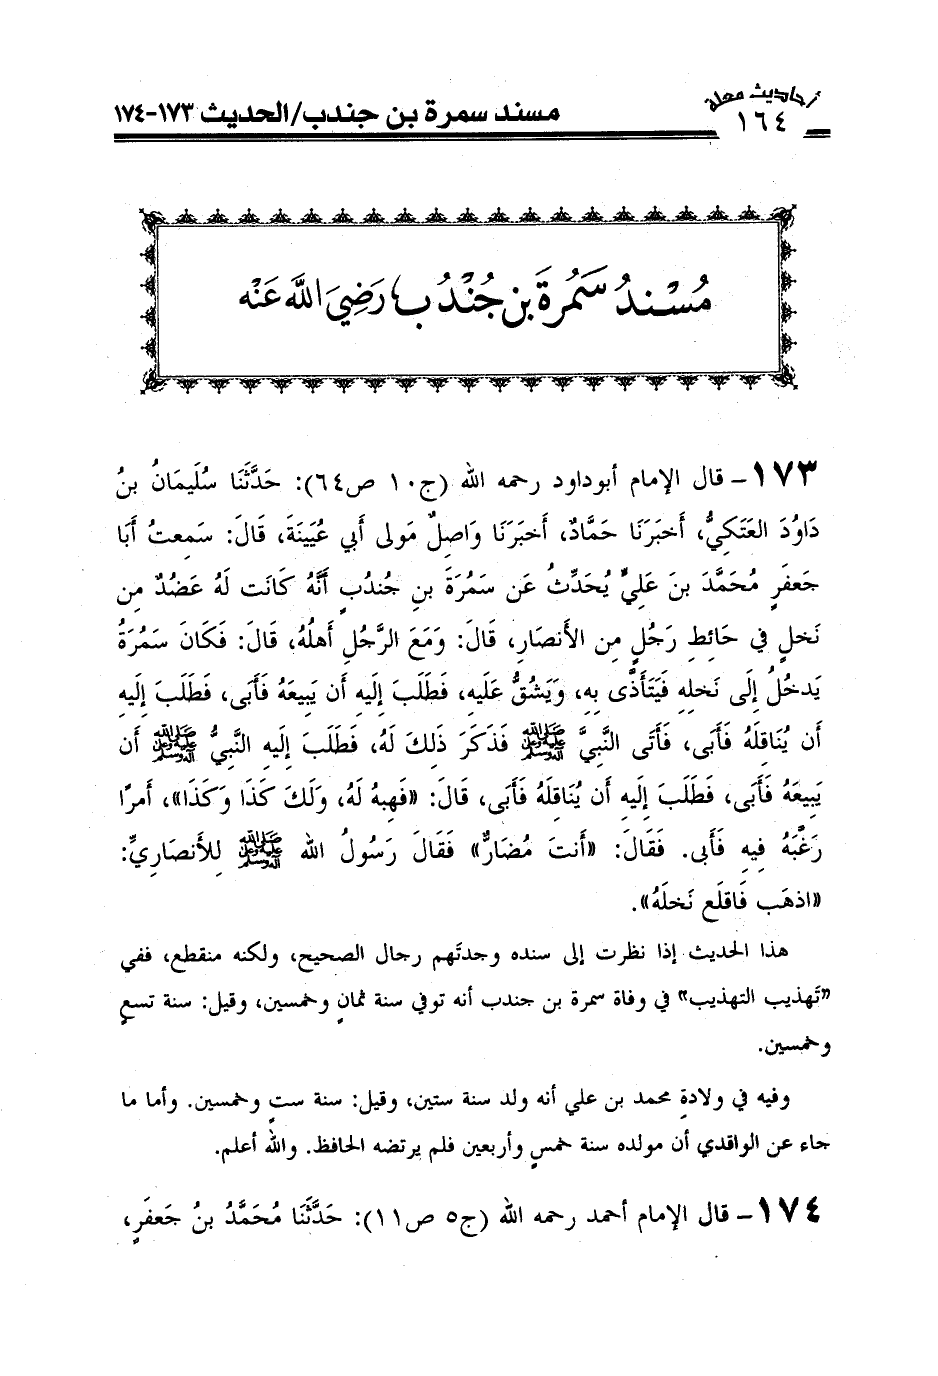 أحاديث معلة
١٦٤
مسند سمرة بن جندب/الحديث ١٧٣-١٧٤
مُسْنَدُ سَمُرَةَ بن جُنْدُبٍ رَضِيَ اللَّه عَنْه
١٧٣- قال الإمام أبوداود رحمه الله (ج١٠ ص٦٤): حَدَّثَنَا سُلَيمَانُ بنُ
دَاوُدَ العَتَكِيُّ، أَخبَرَنَا حَمَّادٌ، أَخبَرَنَا وَاصِلٌ مَولى أبي عُيَينَةَ، قَالَ: سَمِعتُ أَبَا
جَعفَرٍ مُحَمَّدَ بنَ عَلِيٍّ يُحَدِّثُ عَن سَمُرَةَ بنِ جُندُبٍ أَنَّهُ كَانَت لَهُ عَضُدٌ مِن
نَخلٍ في حَائِطِ رَجُلٍ مِن الأَنصَارِ، قَالَ: وَمَعَ الرَّجُلِ أَهلُهُ، قَالَ: فَكَانَ سَمُرَةُ
يَدخُلُ إِلَى نَخلِهِ فَيَتَأَذَّى بِهِ، وَيَشُقُّ عَلَيهِ، فَطَلَبَ إِلَيهِ أَن يَبِيعَهُ فَأَبَى، فَطَلَبَ إِلَيهِ
أَن يُنَاقِلَهُ فَأَبَى، فَأَتَى النَّبِيَّ ﷺ فَذَكَرَ ذَلِكَ لَهُ، فَطَلَبَ إِلَيهِ النَّبِيُّ ﷺ أَن
يَبِيعَهُ فَأَبَى، فَطَلَبَ إِلَيهِ أَن يُنَاقِلَهُ فَأَبَى، قَالَ: «فَهِبهُ لَهُ، وَلَكَ كَذَا وَكَذَا»، أَمرًا
رَغَّبَهُ فِيهِ فَأَبى. فَقَالَ: «أَنتَ مُضَارٌّ» فَقَالَ رَسُولُ الله ﷺ لِلأَنصَارِيِّ:
«اذهَب فَاقلَع نَخلَهُ».
هذا الحديث إذا نظرت إلى سنده وجدتَهم رجال الصحيح، ولكنه منقطع، ففي
«تَهذيب التهذيب» في وفاة سمرة بن جندب أنه توفي سنة ثمانٍ وخمسين، وقيل: سنة تسعٍ
وخمسين.
وفيه في ولادةِ محمد بن علي أنه ولد سنة ستين، وقيل: سنة ستٍ وخمسين. وأما ما
جاء عن الواقدي أن مولده سنة خمسٍ وأربعين فلم يرتضه الحافظ. والله أعلم.
١٧٤- قال الإمام أحمد رحمه الله (ج٥ ص١١): حَدَّثَنَا مُحَمَّدُ بنُ جَعفَرٍ،